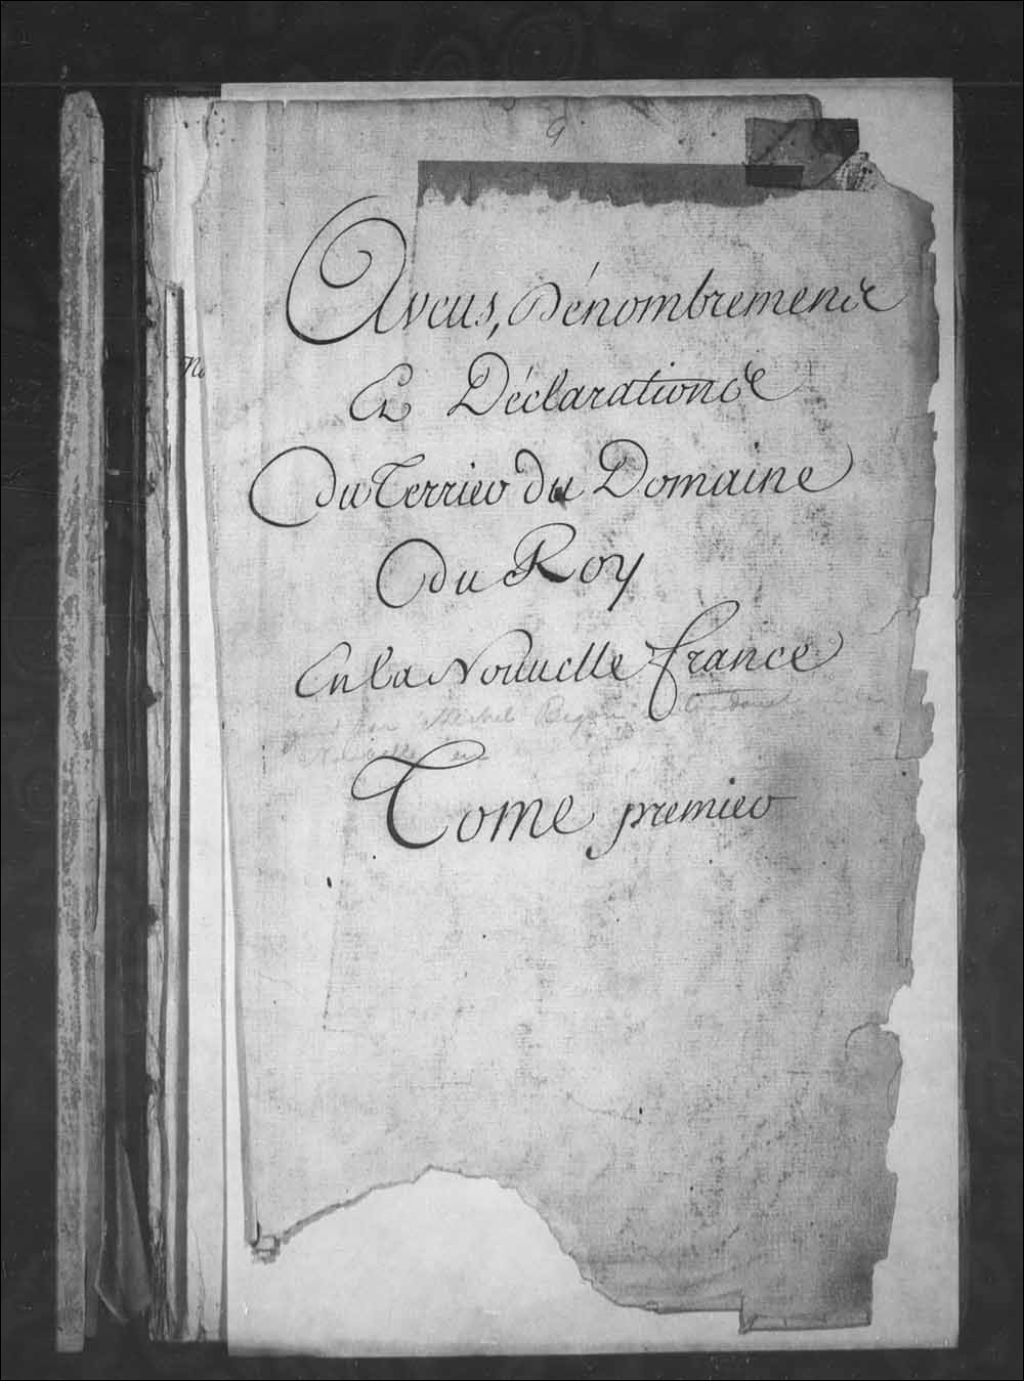 9
Aveus, Dénombremens
Et Déclarations
Du Terrier du Domaine
Du Roy
En la Nouuelle france
par Michel Begon
Tome premier